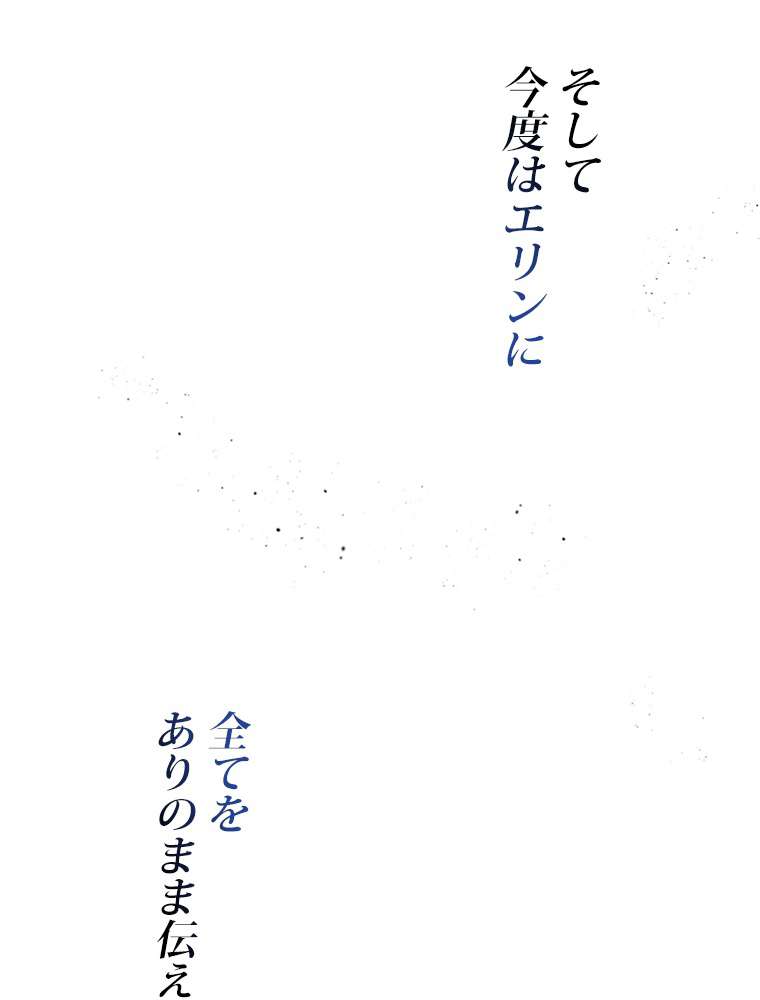 そして
今度はエリンに
全てを
ありのまま伝え